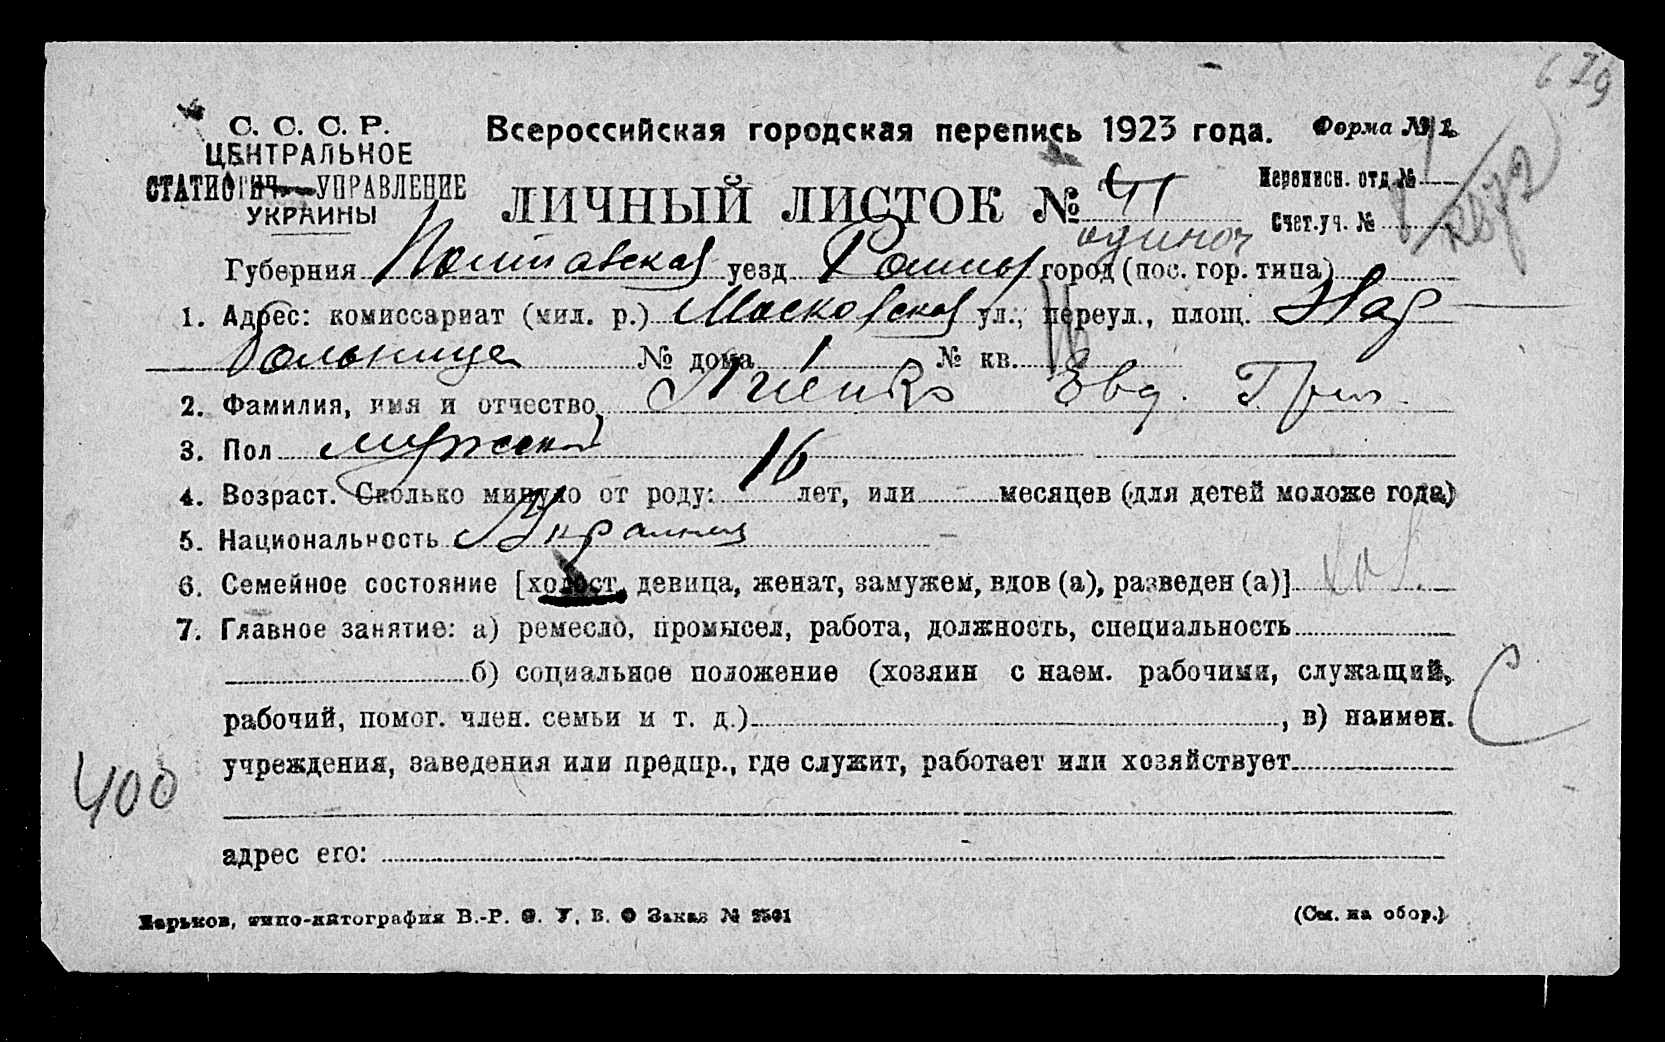 679
С. С. С. Р.
ЦЕНТРАЛЬНОЕ
СТАТИСТИЧ. УПРАВЛЕНИЕ
УКРАИНЫ
Всероссийская городская перепись 1923 года. Форма № 1.
ЛИЧНЫЙ ЛИСТОК № 41
Переписн. отд. №
Счет. уч. №
одиноч
Губерния Полтавская уезд Ромны город (пос. гор. типа)
1. Адрес: комиссариат (мил. р.) Московская ул., переул., площ. Нар
больница № дома 1 № кв.
2. Фамилия, имя и отчество, Евд. Григ.
3. Пол мужской
4. Возраст. Сколько минуло от роду: 16 лет, или - месяцев (для детей моложе года)
5. Национальность Украинец
6. Семейное состояние [холост, девица, женат, замужем, вдов (а), разведен (а)] хол.
7. Главное занятие: а) ремесло, промысел, работа, должность, специальность
б) социальное положение (хозяин с наем. рабочими, служащий,
рабочий, помог. член. семьи и т. д.), в) наимен.
С
учреждения, заведения или предпр., где служит, работает или хозяйствует
400
адрес его:
Харьков, типо-литография В.-Р. О. У. В. О Заказ № 2501
(См. на обор.)